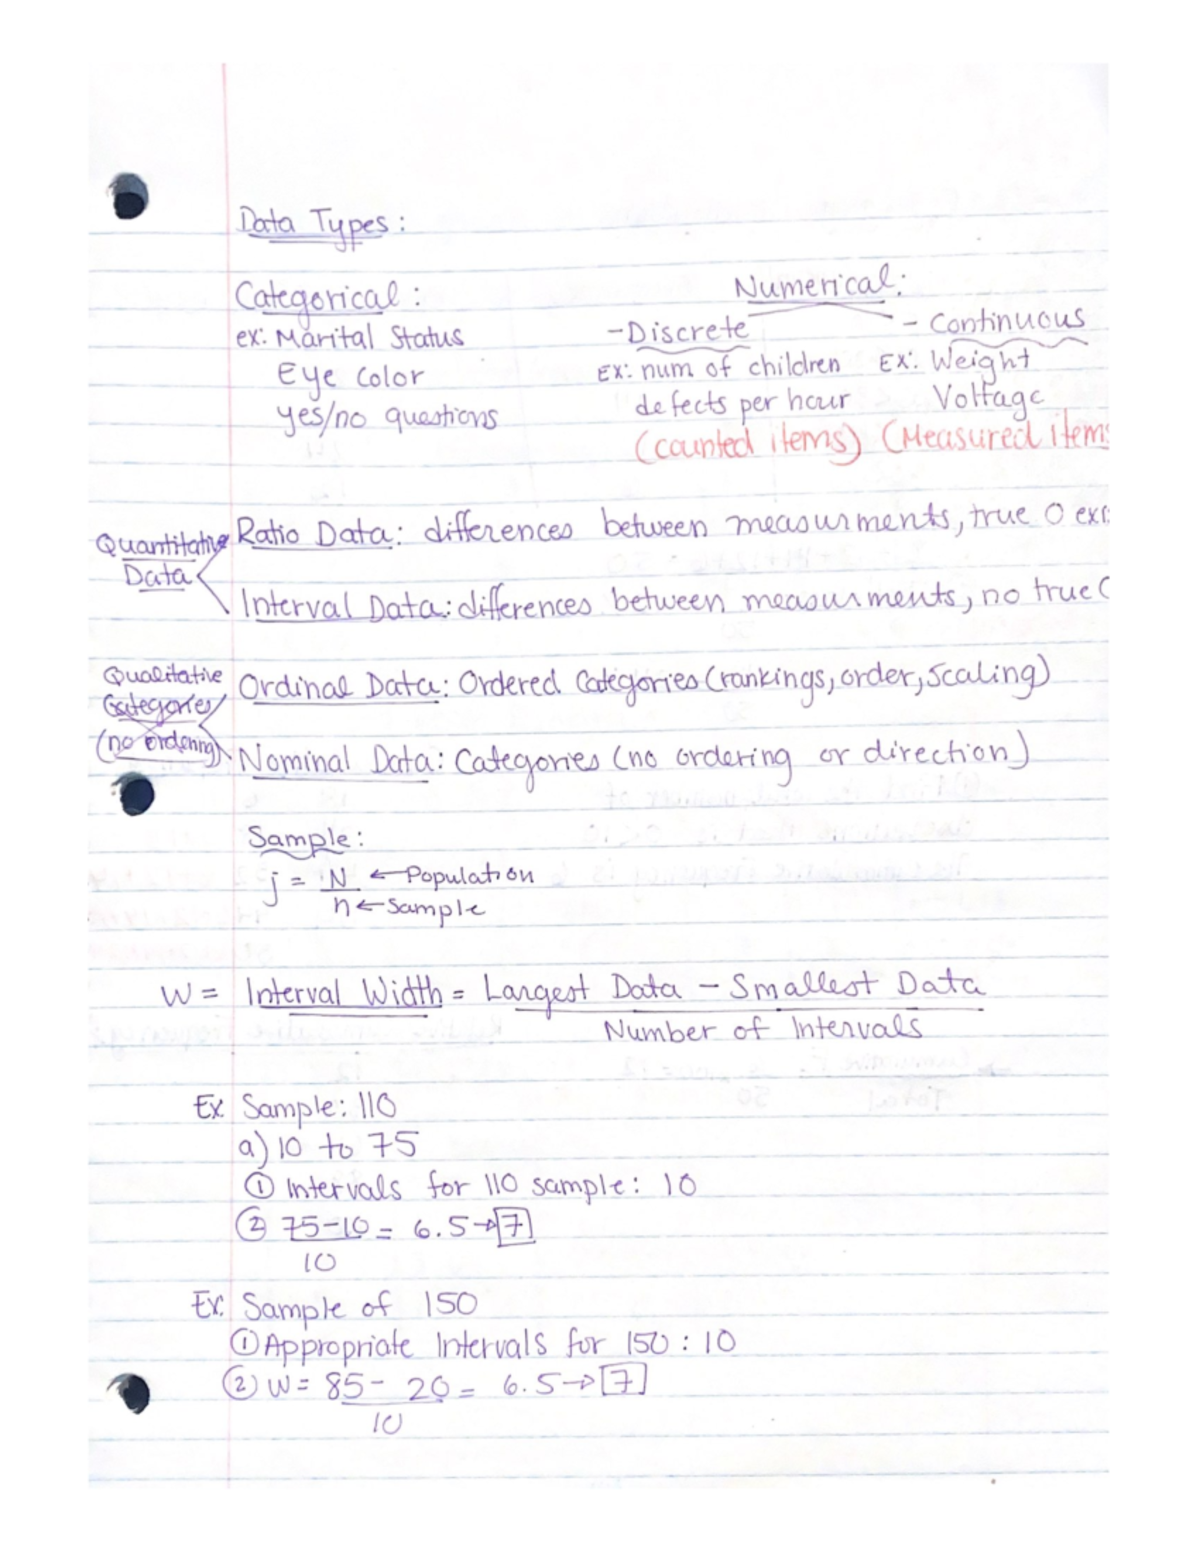 Data Types:
Categorical:
ex: Marital Status
Eye color
yes/no questions
Numerical:
-Discrete
Ex: num of children
defects per hour
(counted items)
- Continuous
Ex: Weight
Voltage
(Measured items
Quantitative
Data
Ratio Data: differences between measurments, true 0 exi
Interval Data: differences between measurments, no true 0
Qualitative
Categories
(no ordering)
Ordinal Data: Ordered Categories (rankings, order, scaling)
Nominal Data: Categories (no ordering or direction)
Sample:
j = N ← Population
n ← Sample
W = Interval Width = Largest Data - Smallest Data
Number of Intervals
Ex. Sample: 110
a) 10 to 75
① Intervals for 110 sample: 10
② 75-10 = 6.5 → 7
10
Ex. Sample of 150
① Appropriate Intervals for 150 : 10
② W = 85 - 20 = 6.5 → 7
10